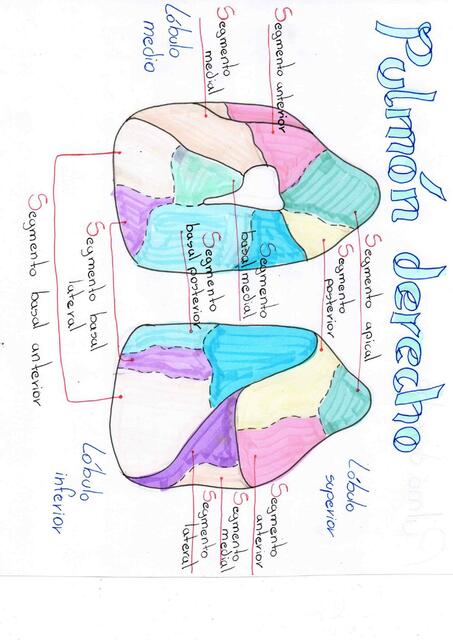 Pulmón derecho
Segmento anterior
Segmento
medial
Lóbulo
medio
Segmento apical
Segmento
posterior
Segmento
basal medial
Segmento
basal posterior
Segmento basal
lateral
Segmento basal anterior
Lóbulo
superior
Segmento
anterior
Segmento
medial
Segmento
lateral
Lóbulo
inferior